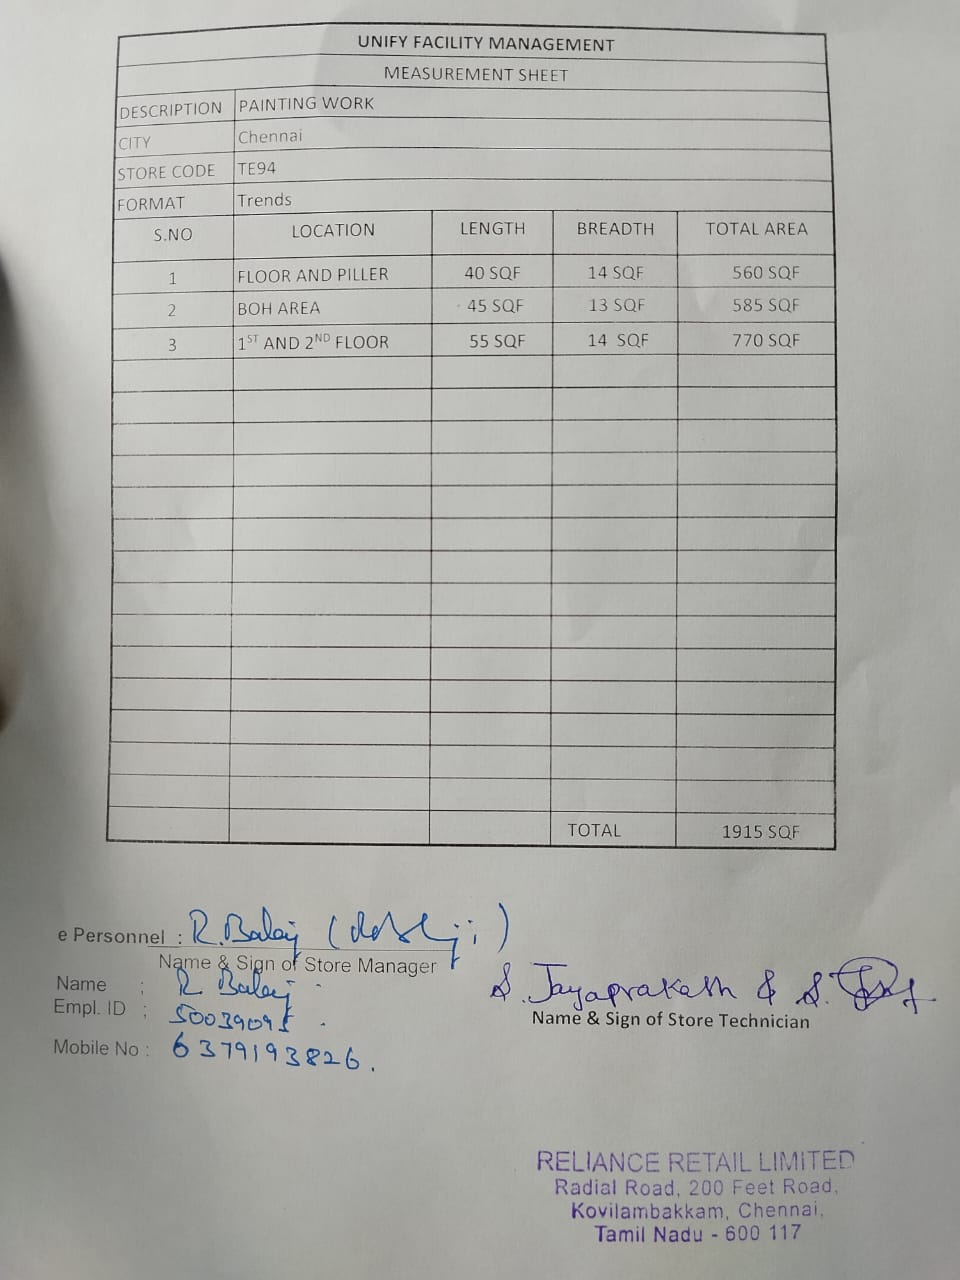 UNIFY FACILITY MANAGEMENT
MEASUREMENT SHEET
DESCRIPTION PAINTING WORK
CITY Chennai
STORE CODE TE94
FORMAT Trends
S.NO LOCATION LENGTH BREADTH TOTAL AREA
1 FLOOR AND PILLER 40 SQF 14 SQF 560 SQF
2 BOH AREA 45 SQF 13 SQF 585 SQF
3 1ST AND 2ND FLOOR 55 SQF 14 SQF 770 SQF
TOTAL 1915 SQF
e Personnel : R. Balaji
Name & Sign of Store Manager
Name : R Balaji
S. Jayaprakash & S.
Empl. ID :
Name & Sign of Store Technician
Mobile No : 6379193826.
RELIANCE RETAIL LIMITED
Radial Road, 200 Feet Road,
Kovilambakkam, Chennai,
Tamil Nadu - 600 117